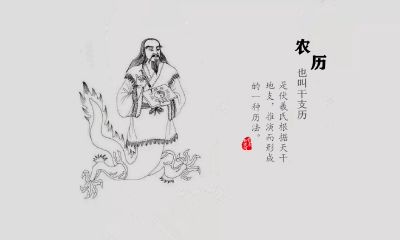 农历
也叫干支历
是伏羲氏根据天干
地支，推演而形成
的一种历法。